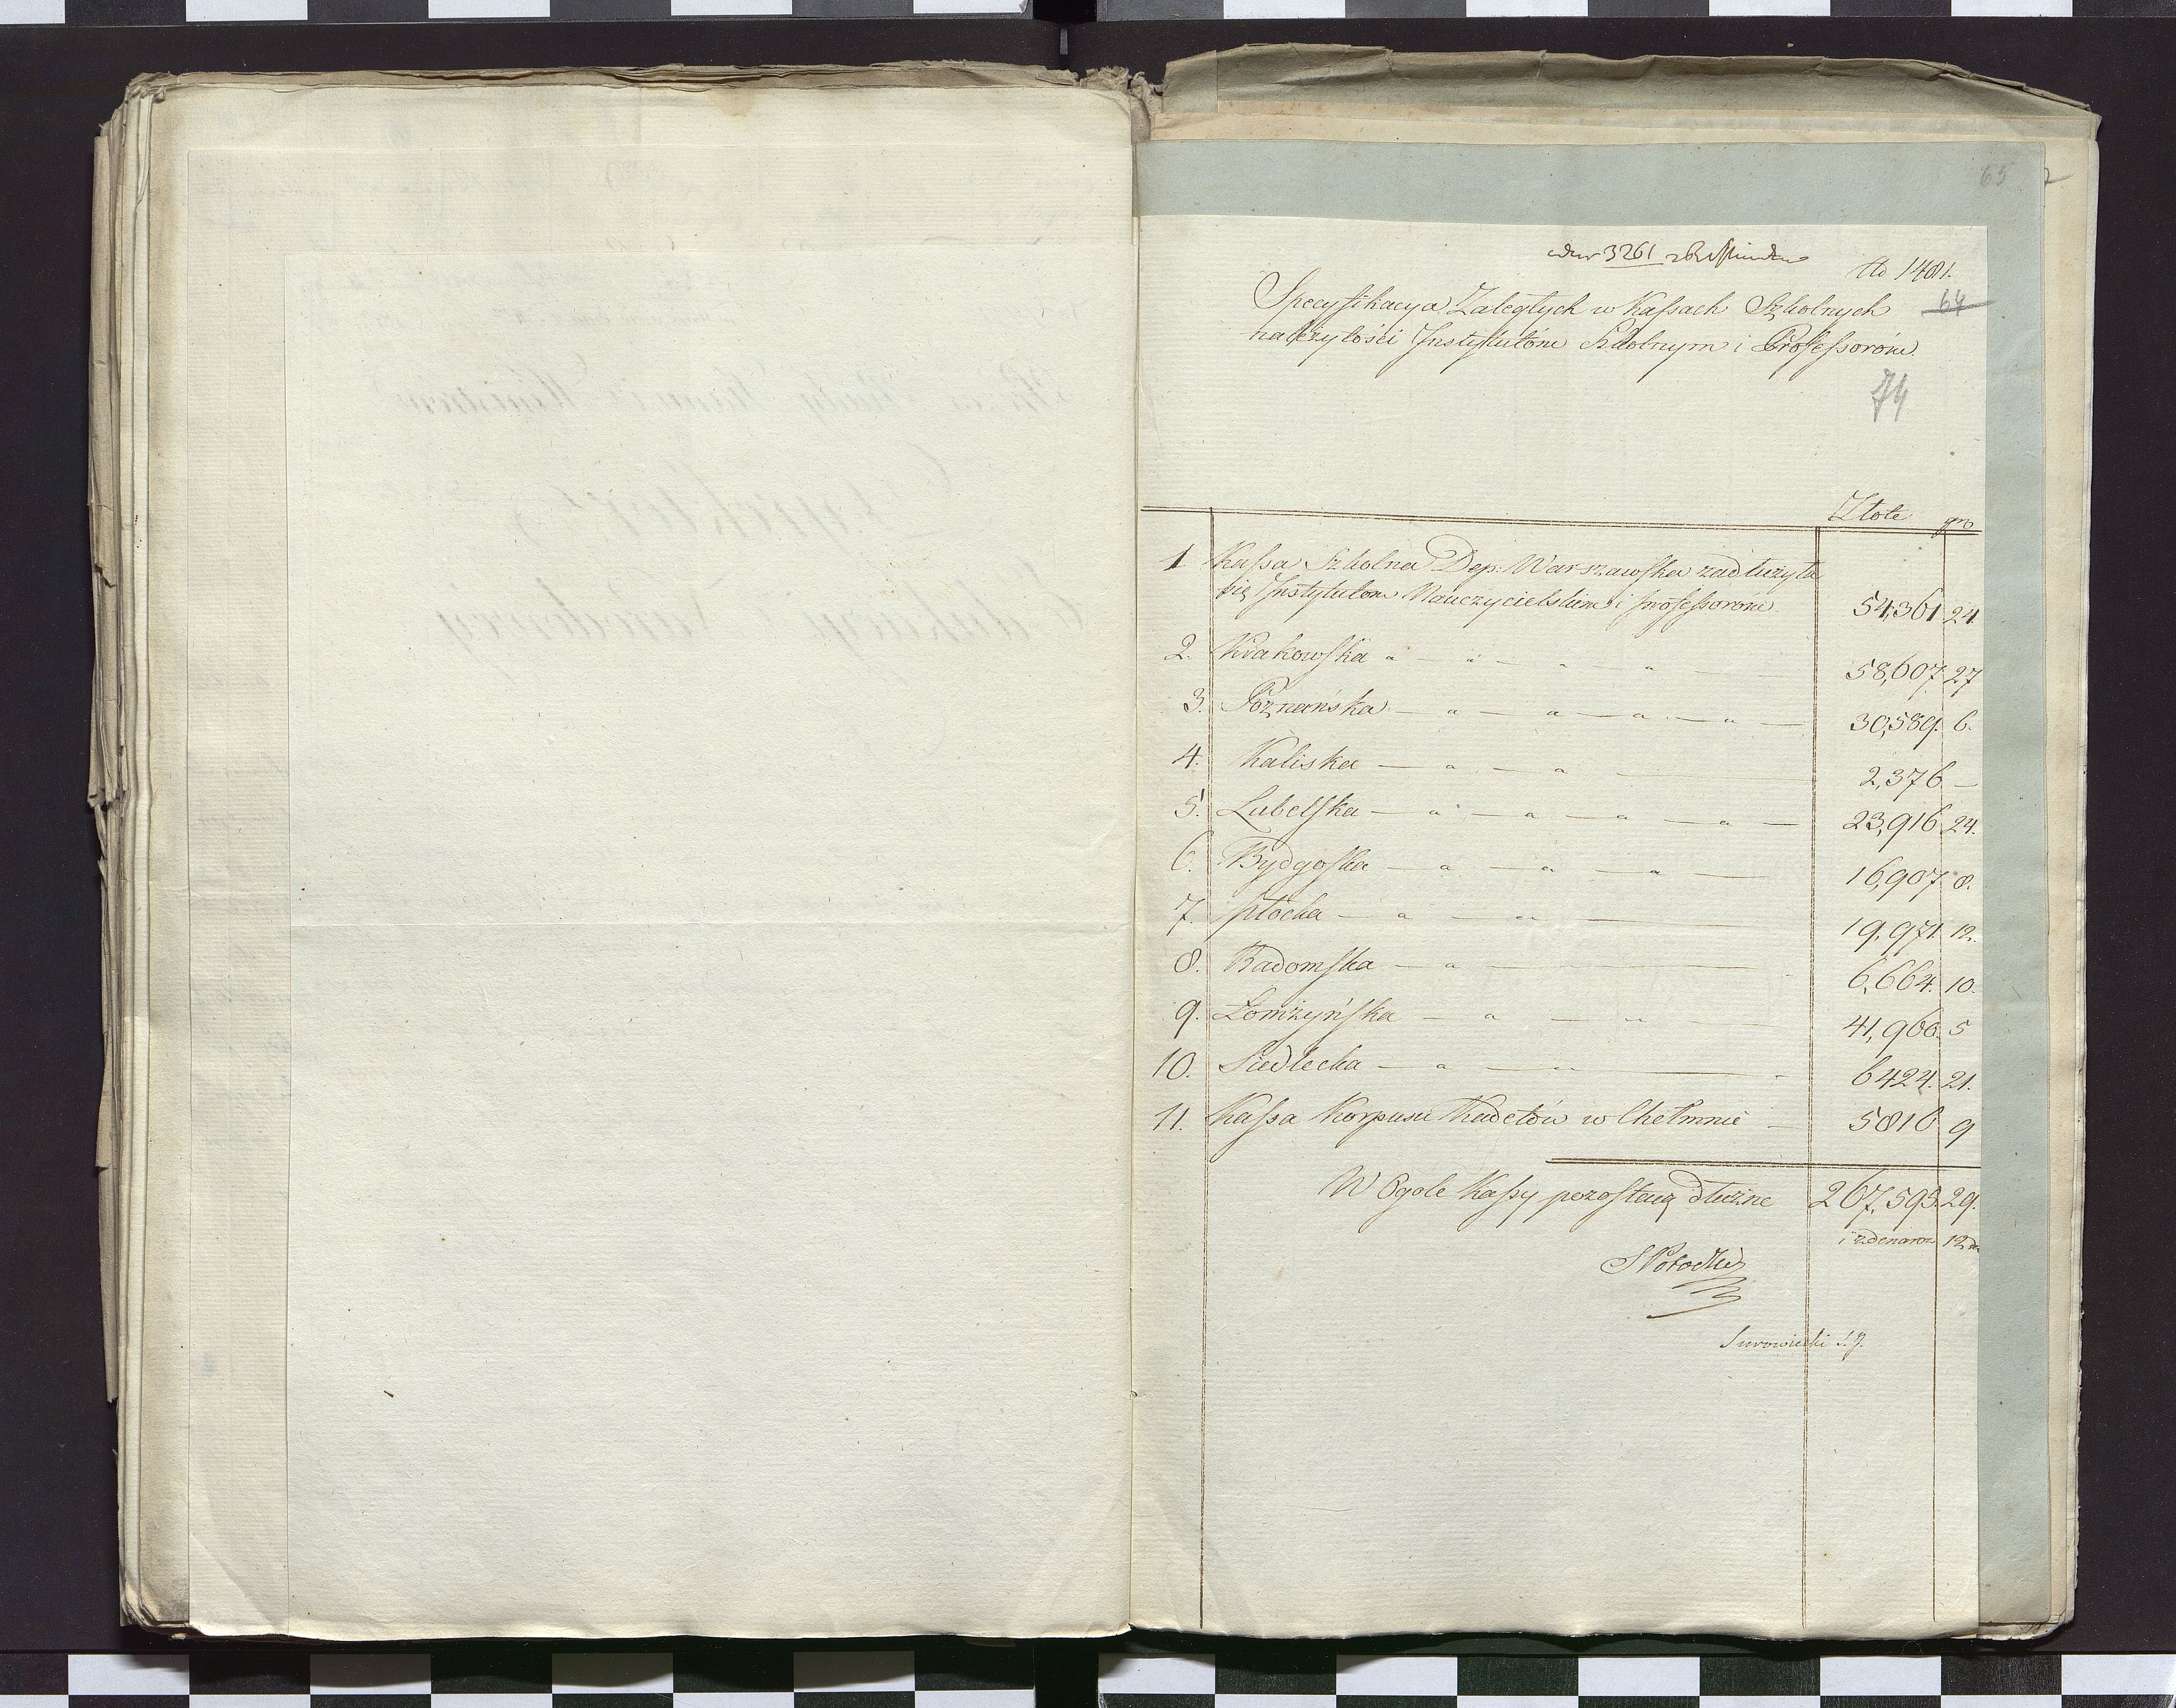 65
ad No 1481.
64
Specyfikacya Zaległych w Kassach Szkolnych
należytości Instytutóm Szkolnym i Professoróm.
74
Złote gro
1 Kassa Szkolna Dep: Warszawska zadłużyła
się Instytutom Nauczycielskim i professoróm 54,361 24
2. Krakowska 58,607. 27
3. Poznańska 30,589. 6.
4. Kaliska 2,376. —
5. Lubelska 23,916 24.
6. Bydgoska 16,907. 8.
7. Płocka 19,971. 12.
8. Radomska 6,664. 10.
9. Łomżyńska 41,960. 5
10. Siedlecka 6424. 21.
11. Kassa Korpusu Kadetów w Chełmnie 5816 9
W Ogole Kassy pozostaią dłużne 267,595. 29.
i z denarów 12
SPotocki
Surowiecki S.J.